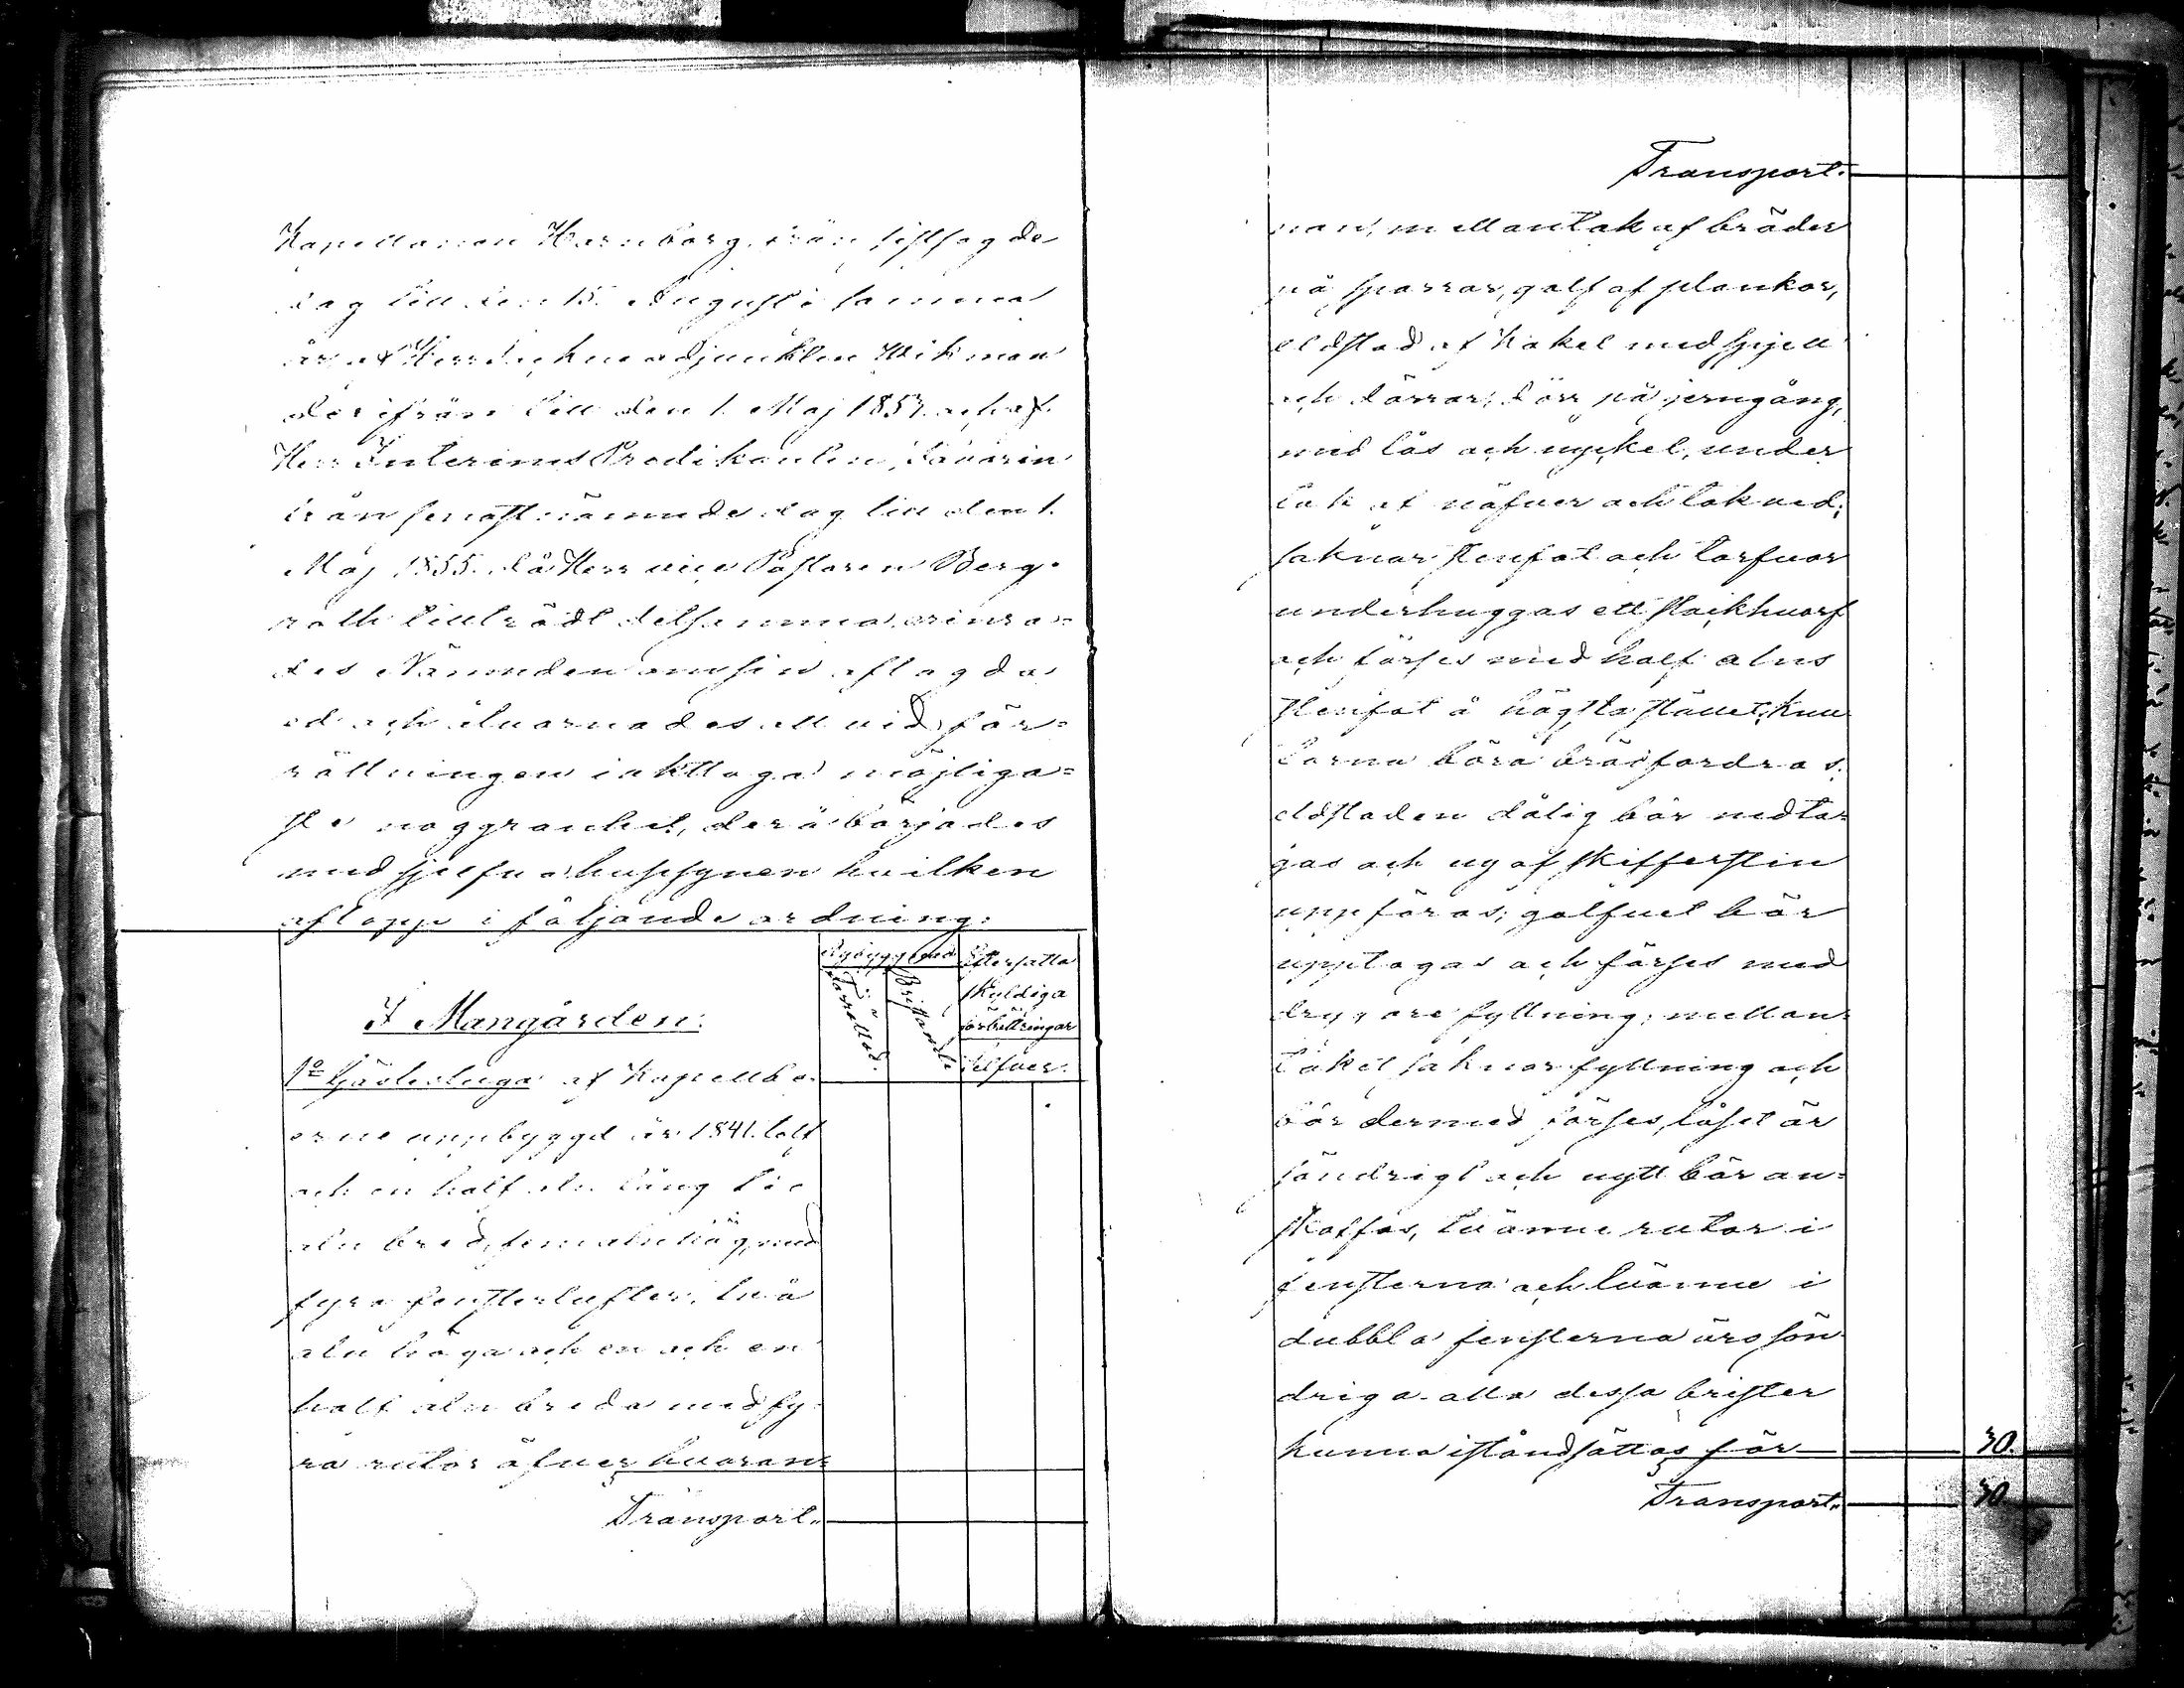 Kapellanen Hornborg från sistsagde
dag till den 15. Augusti samma
år, af Herr Wikman
derifrån till den 1. Maj 1853. och af
Herr Interims Predikanten Favorin
från senastnämnde dag till den 1.
Maj 1855. då Herr vice Pastoren Berg-
roth tillträdt detsamma, erinra-
des Nämnden om sin aflagda
ed och åtvarnades att vid för-
rättningen iakttaga möjliga-
ste noggranhet, derå börjades
med sjelfva hussynen hvilken
aflopp i följande ordning:
Nybyggnad
Efter satta
skyldiga
förbättringar
Förrättad.
Bristande.
Silfver.
I Mangården:
1o Gästestuga af Kapellbo-
erne uppbyggd år 1841. tolf
och en half aln lång tio
aln bred, fem aln hög, med
fyra fensterlufter, två
aln höga och en och en
half aln breda med fy-
ra rutor öfver hvaran-
Transport.
Transport.
nan, mellantak af bräder
på sparrar, golf af plankor,
eldstad af Kakel med spjell
och dörrar, dörr på jerngång,
med lås och nyckel, under
tak af näfver och takved;
saknar stenfot och torfvor
underhuggas ett stockhvarf
och förses med half alns
stenfot å högsta stället, knu
tarne böra brädfordras.
eldstaden dålig bör nedta-
gas och ny af skiffersten
uppföras; golfvet bör
upptagas och förses med
drygare fyllning; mellan-
taket saknar fyllning och
bör dermed förses, låset är
söndrigt och nytt bör an-
skaffas, tvänne rutor i
fensterna och tvänne i
dubbla fensterna äro sön-
driga. alla dessa brister
kunna iståndsättas för 30.
Transport. 30.